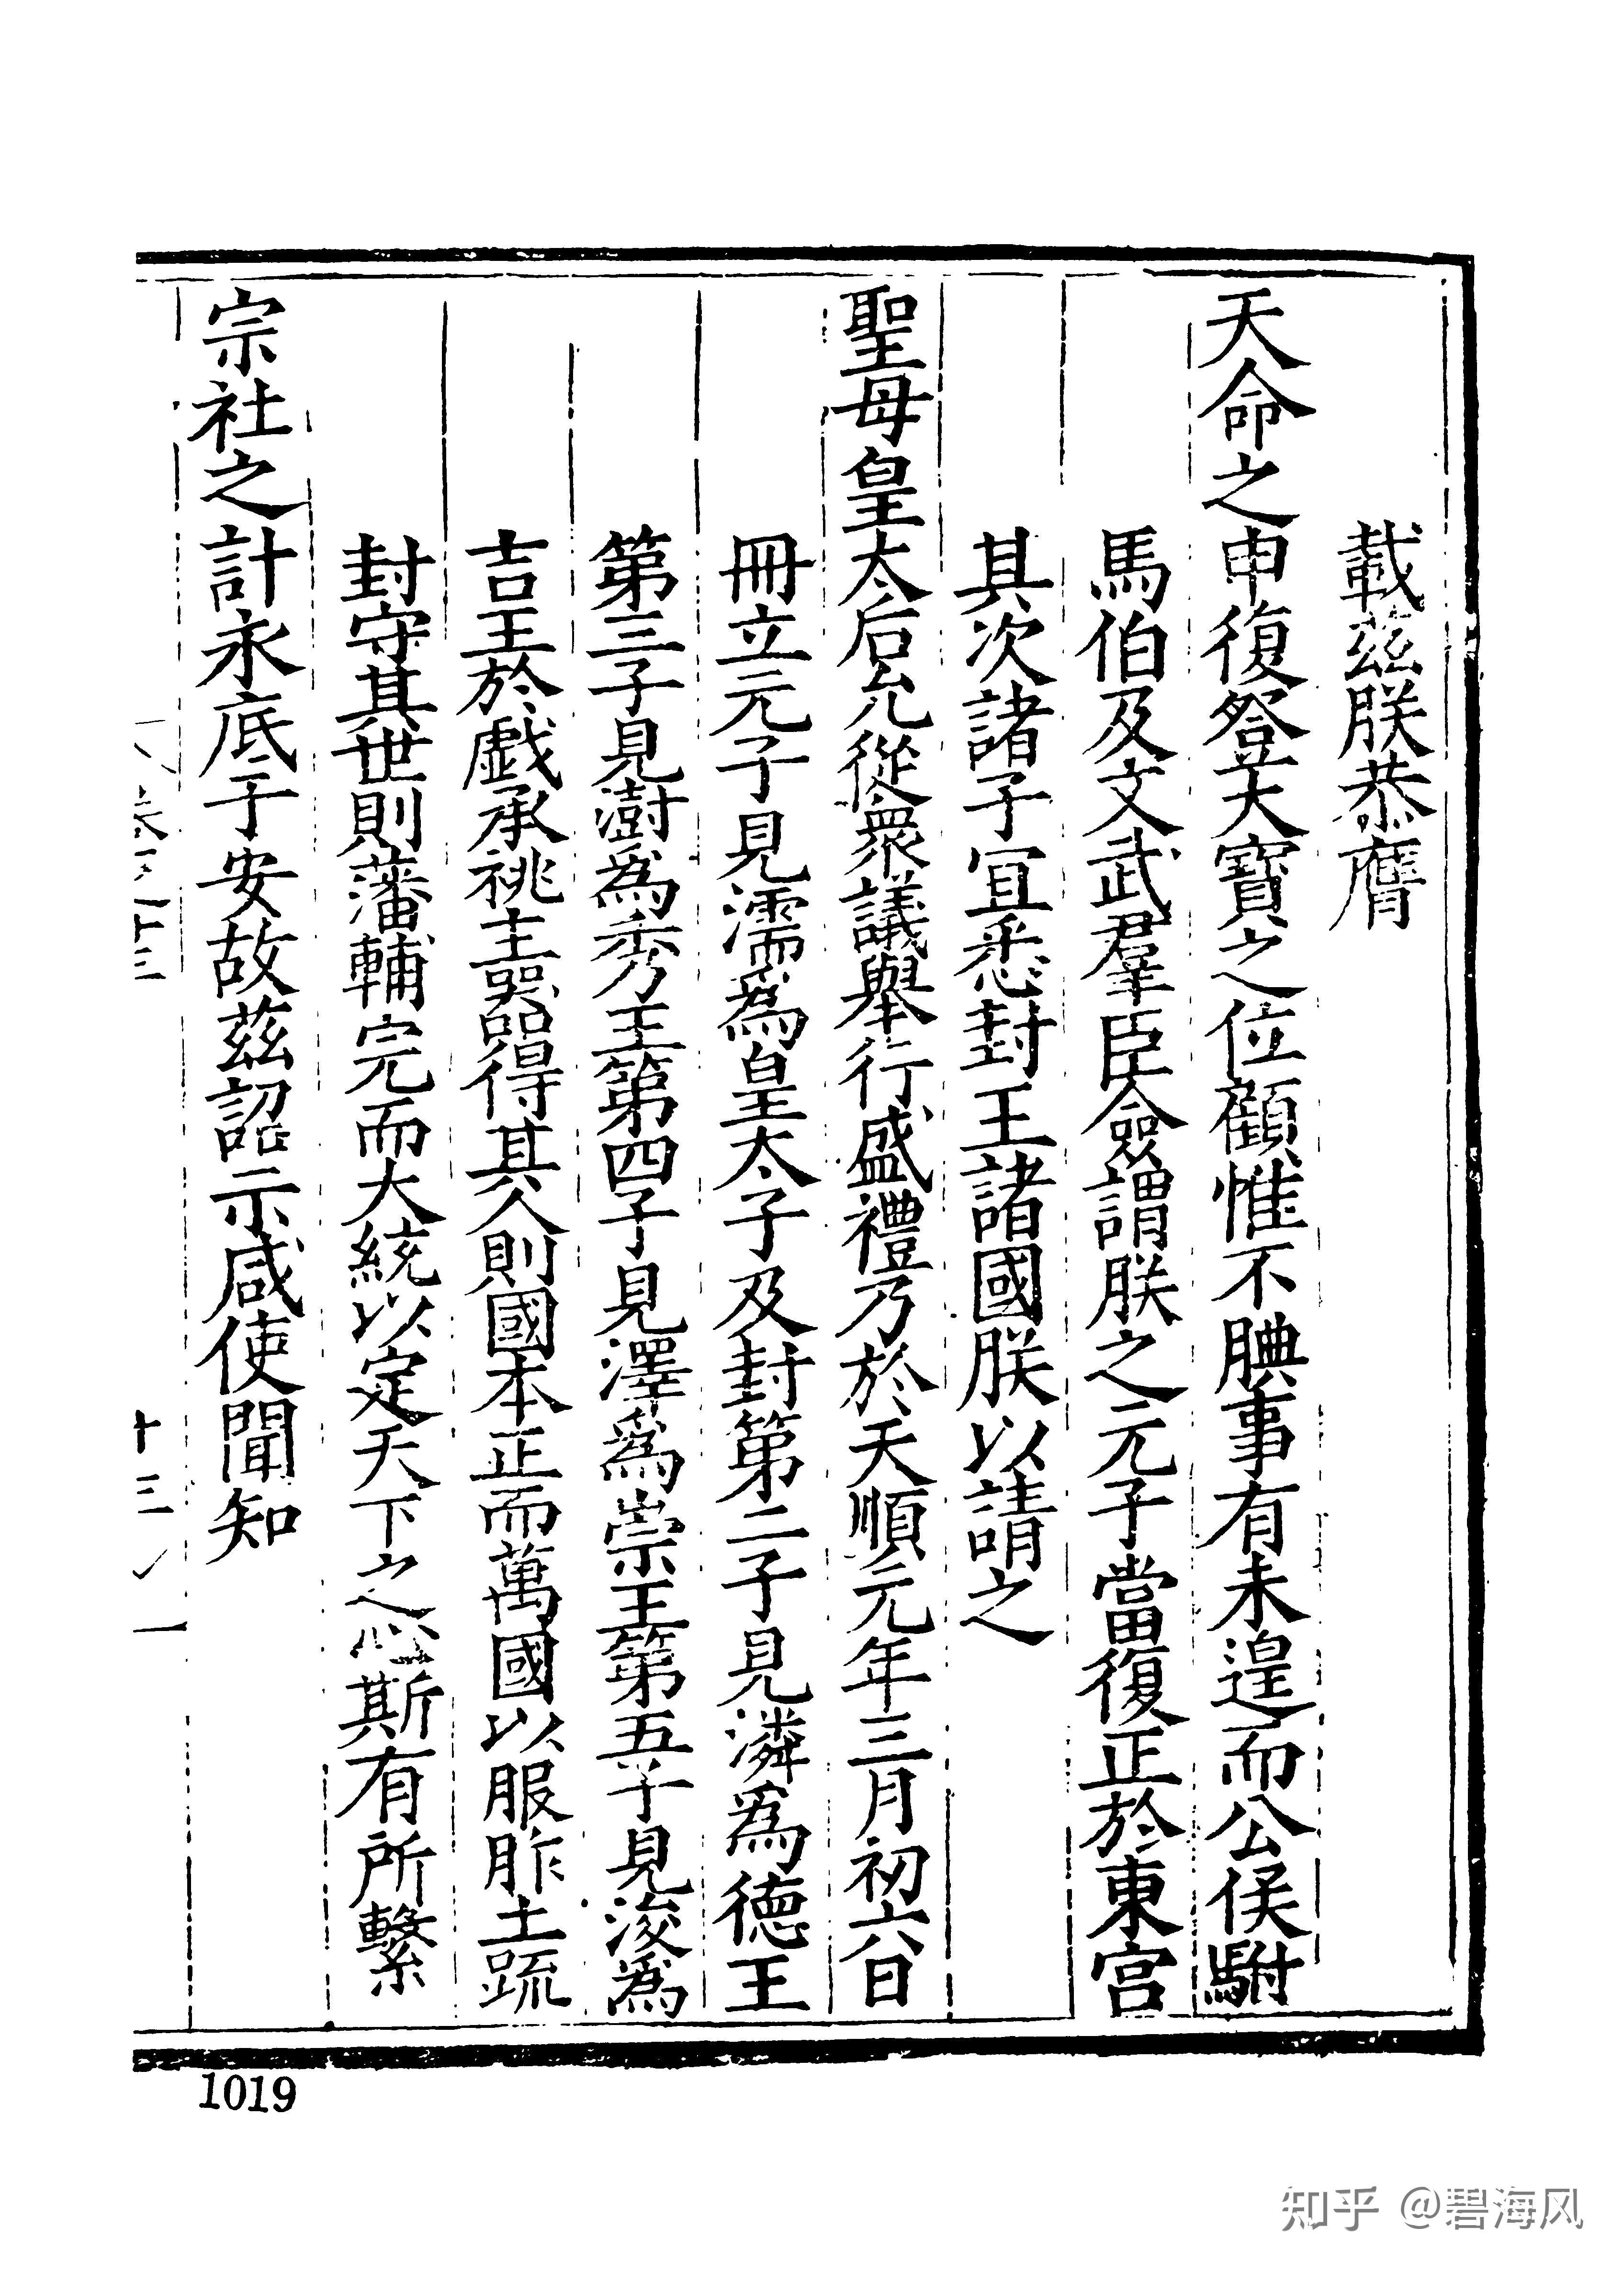 載茲朕恭膺
天命之申復登大寶之位顧惟不腆事有未遑而公侯駙
馬伯及文武羣臣僉謂朕之元子當復正於東宮
其次諸子宜悉封王諸國朕以請之
聖母皇太后允從衆議舉行盛禮乃於天順元年三月初六日
冊立元子見濡爲皇太子及封第二子見潾爲德王
第三子見澍爲秀王第四子見澤爲崇王第五子見浚爲
吉王於戲承祧主器得其人則國本正而萬國以服胙土疏
封守其世則藩輔完而大統以定天下之 斯有所繫
宗社之計永底于安故茲詔示咸使聞知
十三
1019
知乎 @碧海风